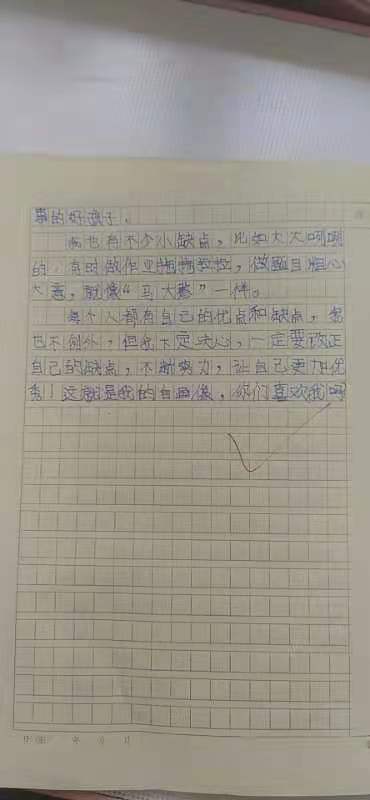 的好孩子。
我也有不少小缺点，比如大大咧咧
的，有时做作业拖拖拉拉，做题目粗心
大意，就像“马大哈”一样。
每个人都有自己的优点和缺点，我
也不例外，但我下定决心，一定要改正
自己的缺点，不断努力，让自己更加优
秀！这就是我的自画像，你们喜欢我吗
年 月 日